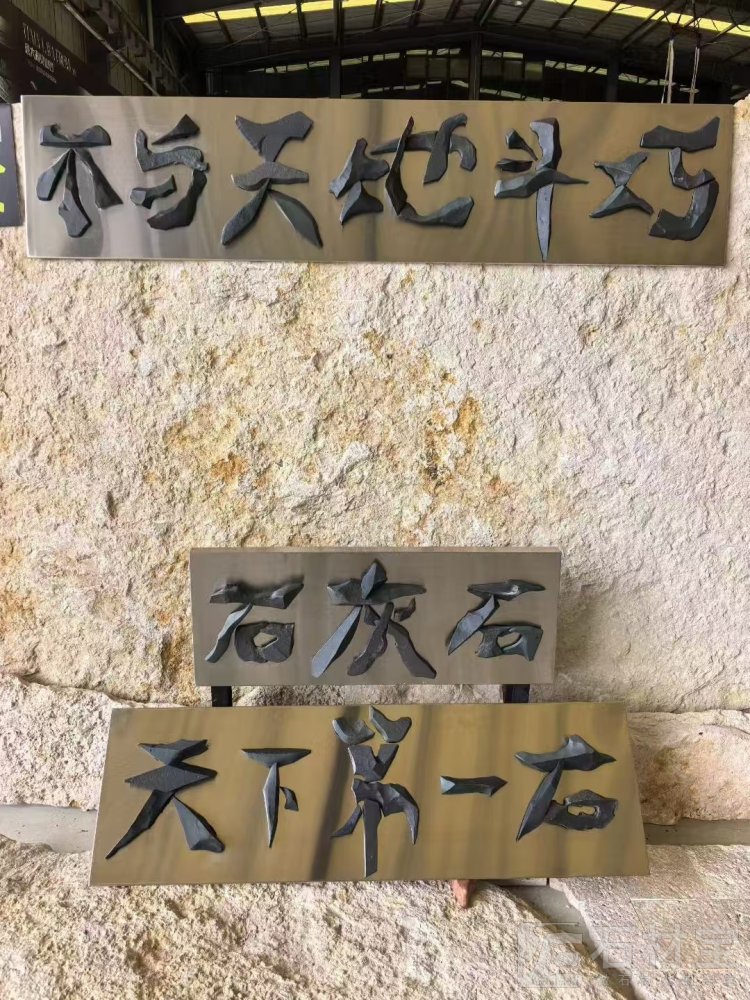 不与天地斗巧
石灰石
天下第一石
石材宝